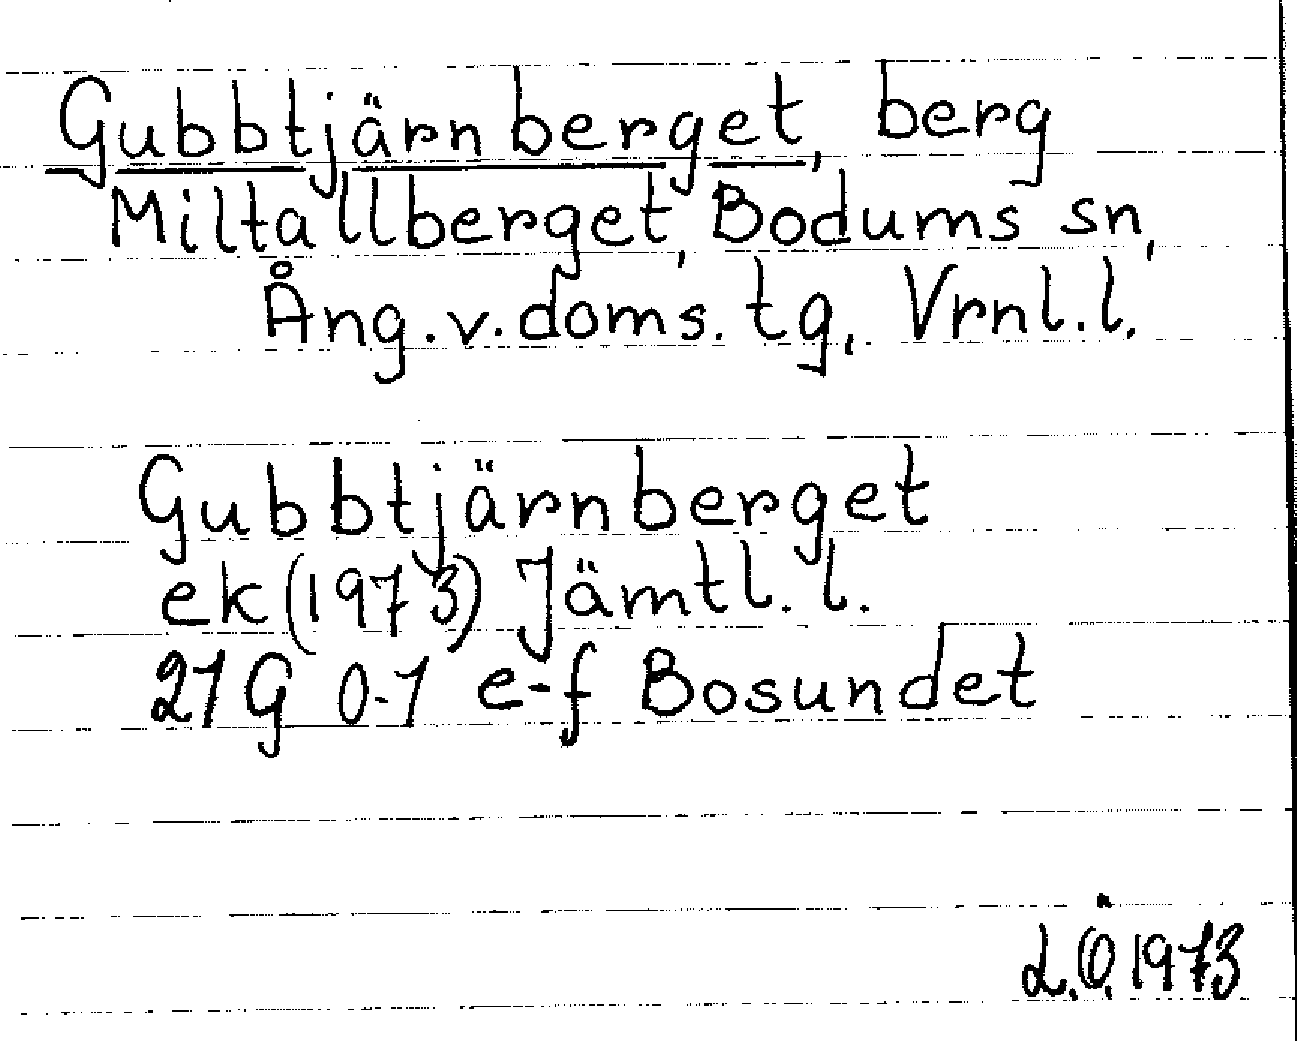 Gubbtjärnberget, berg
Miltallberget, Bodums sn,
Ång.v.doms.tg, Vrnl.l.
Gubbtjärnberget
ek(1973) Jämtl.l.
21G 0-1 e-f Bosundet
L.Ö.1973